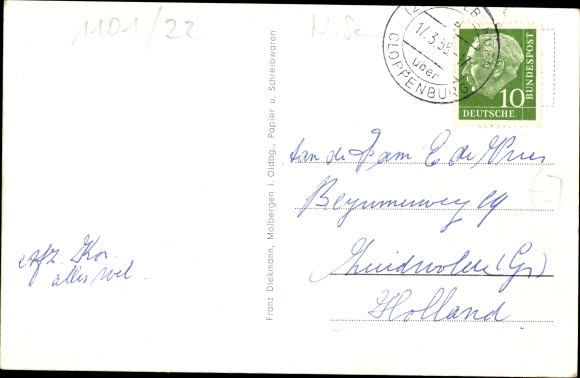 1101/22
N. Sa
17.3.58
über
CLOPPENBURG
10
DEUTSCHE
BUNDESPOST
Franz Diekmann, Molbergen i. Oldbg., Papier u. Schreibwaren
Aan de Fam E de Vries
49
Zuidwolde (Gr)
Holland
afz. Kor.
alles wel.